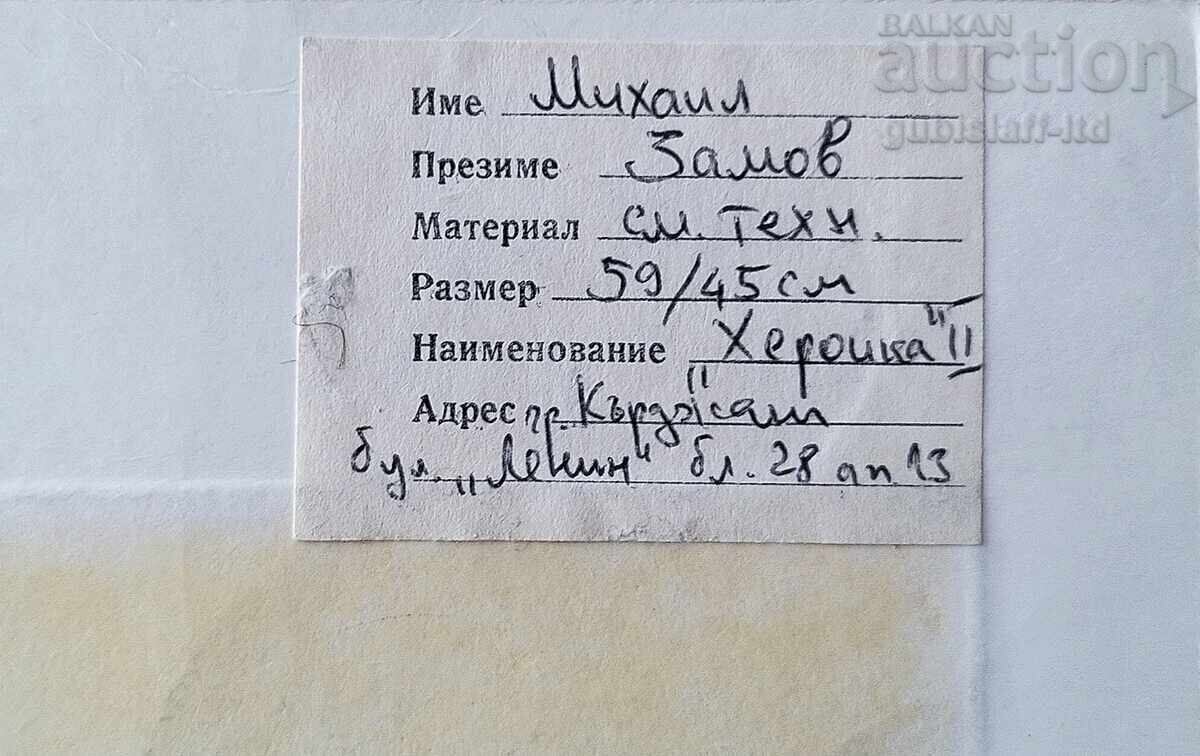 BALKAN
auction
gubislaff-ltd
Име Михаил
Презиме Замов
Материал см. техн.
Размер 59/45 см
Наименование "Хероика" II
Адрес гр. Кърджали
бул. „Ленин“ бл. 28 ап. 13